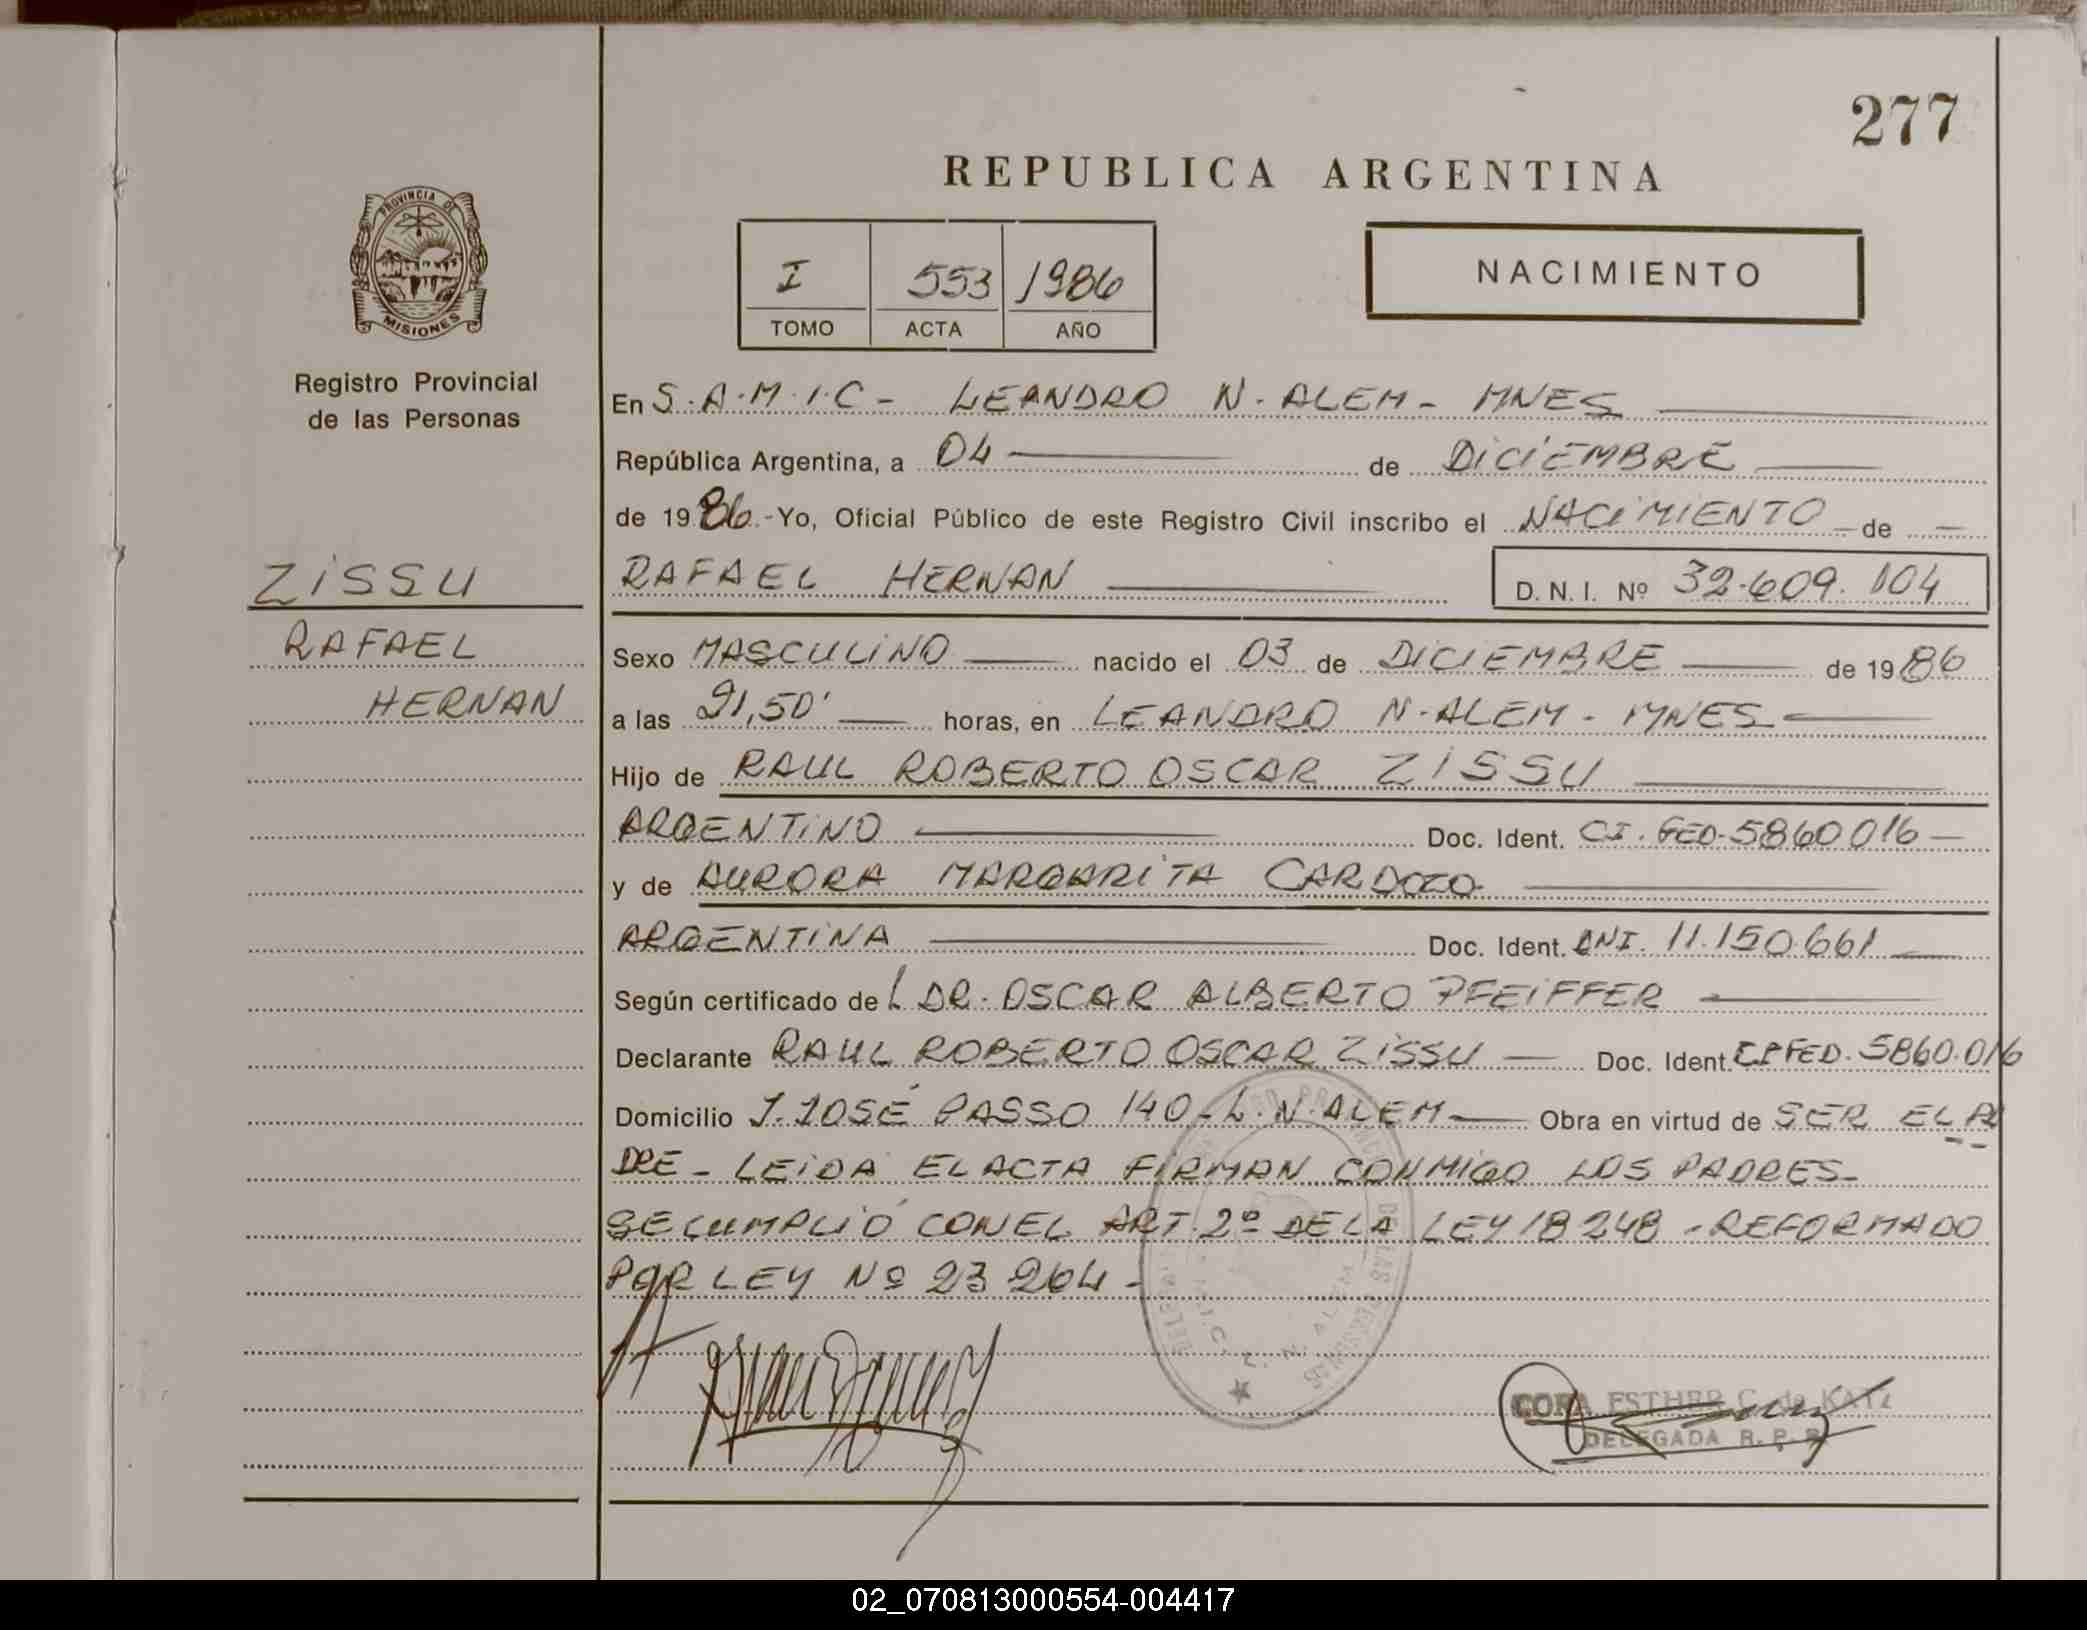 277
REPUBLICA ARGENTINA
PROVINCIA DE
MISIONES
Registro Provincial
de las Personas
I 553 1986
TOMO ACTA AÑO
NACIMIENTO
En S.A.M.I.C- LEANDRO N. ALEM- MNES
República Argentina, a 04 de DICIEMBRE
de 1986.-Yo, Oficial Público de este Registro Civil inscribo el NACIMIENTO de
RAFAEL HERNAN D. N. I. Nº 32.609.104
ZISSU
RAFAEL
HERNAN
Sexo MASCULINO nacido el 03 de DICIEMBRE de 1986
a las 21,50' horas, en LEANDRO N. ALEM - MNES
Hijo de RAUL ROBERTO OSCAR ZISSU
ARGENTINO Doc. Ident. CI. FED. 5860016
y de AURORA MARGARITA CARDOZO
ARGENTINA Doc. Ident. DNI. 11.150.661
Según certificado de L DR. OSCAR ALBERTO PFEIFFER
Declarante RAUL ROBERTO OSCAR ZISSU Doc. Ident. FED. 5860.016
Domicilio J. JOSÉ PASSO 140 - L. N. ALEM Obra en virtud de SER EL PA
DRE - LEIDA EL ACTA FIRMAN CONMIGO LOS PADRES-
SE CUMPLIÓ CON EL ART. 2º DE LA LEY 18248 - REFORMADO
POR LEY Nº 23264-
CORA ESTHER C. de KATZ
DELEGADA R. P. P.
02_070813000554-004417